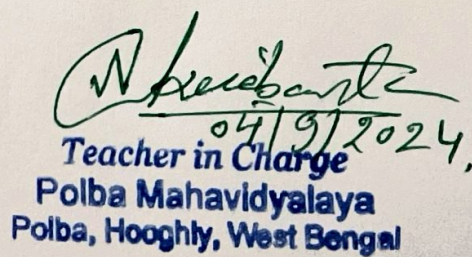 04/9/2024,
Teacher in Charge
Polba Mahavidyalaya
Polba, Hooghly, West Bengal